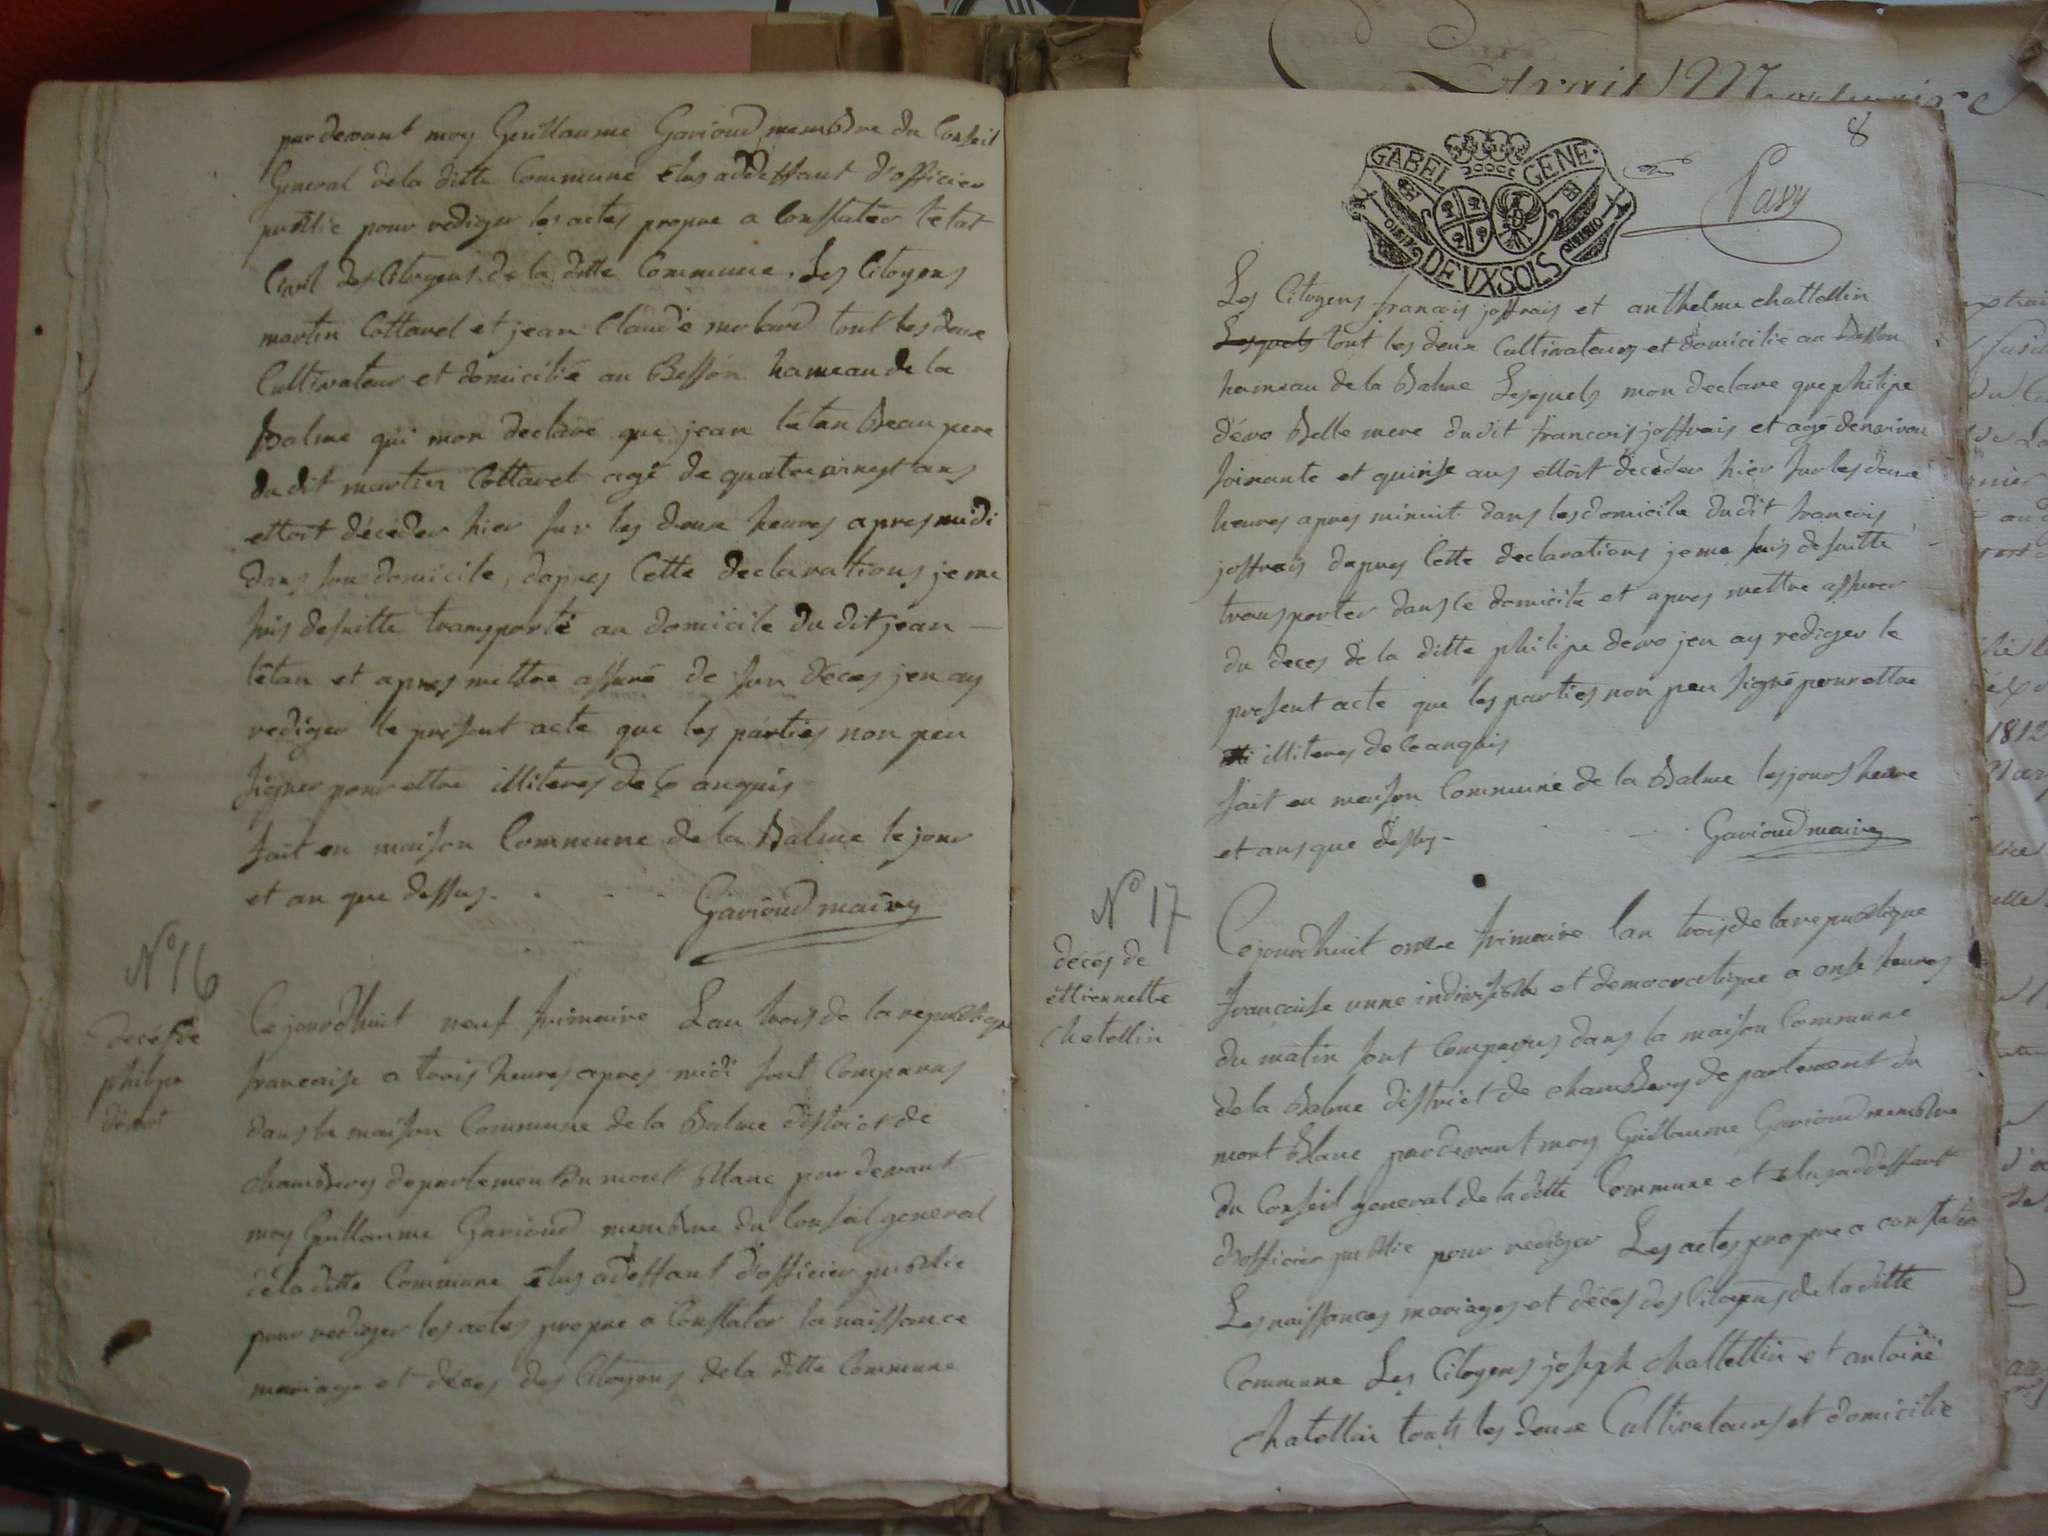 par devant moy Guillaume Gavioud membre du Conseil
General dela ditte Commune élus addeffaut d'officier
publie pour rediger les actes propre a Constater l'etat
Civil des Citoyens de la ditte Commune. Les Citoyens
martin Cottavel et jean Claude molard tout les deux
Cultivateur et domicilié au Besson hameau de la
Balme qui mon declaré que jean tétan Beau pere
du dit martin Cottaret agé de quatre vingt ans
ettoit décéder hier sur les deux heures apres midi
dans son domicile, dapres Cette declarations je me
suis desuitte transporté au domicile du dit jean
tétan et apres mettre assuré de son déces jen ay
rediger le présent acte que les parties non peu
signer pour ettre illiteres de ce anquis
fait en maison Commune de la Balme le jour
et an que dessus.
Gavioud maire
N° 16
decés de
philipe
Ce jourdhuit neuf frimaire Lan trois de la republique
francaise a trois heures apres midi sont Comparus
dans la maison Commune de la Balme district de
chambery departement du mont Blanc par devant
moy Guillaume Gavioud membre du Conseil general
dela ditte Commune élus adeffaut d'officier publie
pour rediger les actes propre a Constater la naissance
mariage et déces des Citoyens dela ditte Commune
8
GABEL GENE.
DEVX SOLS
Les Citoyens francois joffrais et anthelme chattellin
Lesquels tout les deux Cultivateurs et domicilié au Besson
hameau de la Balme Lesquels mon declare que philipe
dévo Belle mere dudit francois joffrais et agé denviron
soixante et quinse ans ettoit déceder hier sur les deux
heures apres minuit dans les domicile dudit francois
joffrais dapres Cette declarations je me suis desuitte
transporter dans le domicile et apres mettre assurer
du deces de la ditte philipe devo jen ay rediger le
present acte que les parties non peu signé pour ettre
illiteres de ce anquis
fait en maison Commune de la Balme les jours heure
et ans que dessus-
Gavioud maire
N° 17
décés de
ettiennette
chatellin
Ce jourdhuit onze frimaire lan trois de la republique
francaise unne indivisible et democratique a onse heures
du matin sont Comparus dans la maison Commune
de la Balme district de chambery de partement du
mont Blanc par devant moy Guillaume Gavioud membre
du Conseil general de la ditte Commune et élus addeffaut
d'officier publie pour rediger Les actes propre a constater
Les naissances mariages et décés des Citoyens de la ditte
Commune Les Citoyens joseph chattellin et antoine
chatellin touts les deux Cultivateurs et domicilié
1812